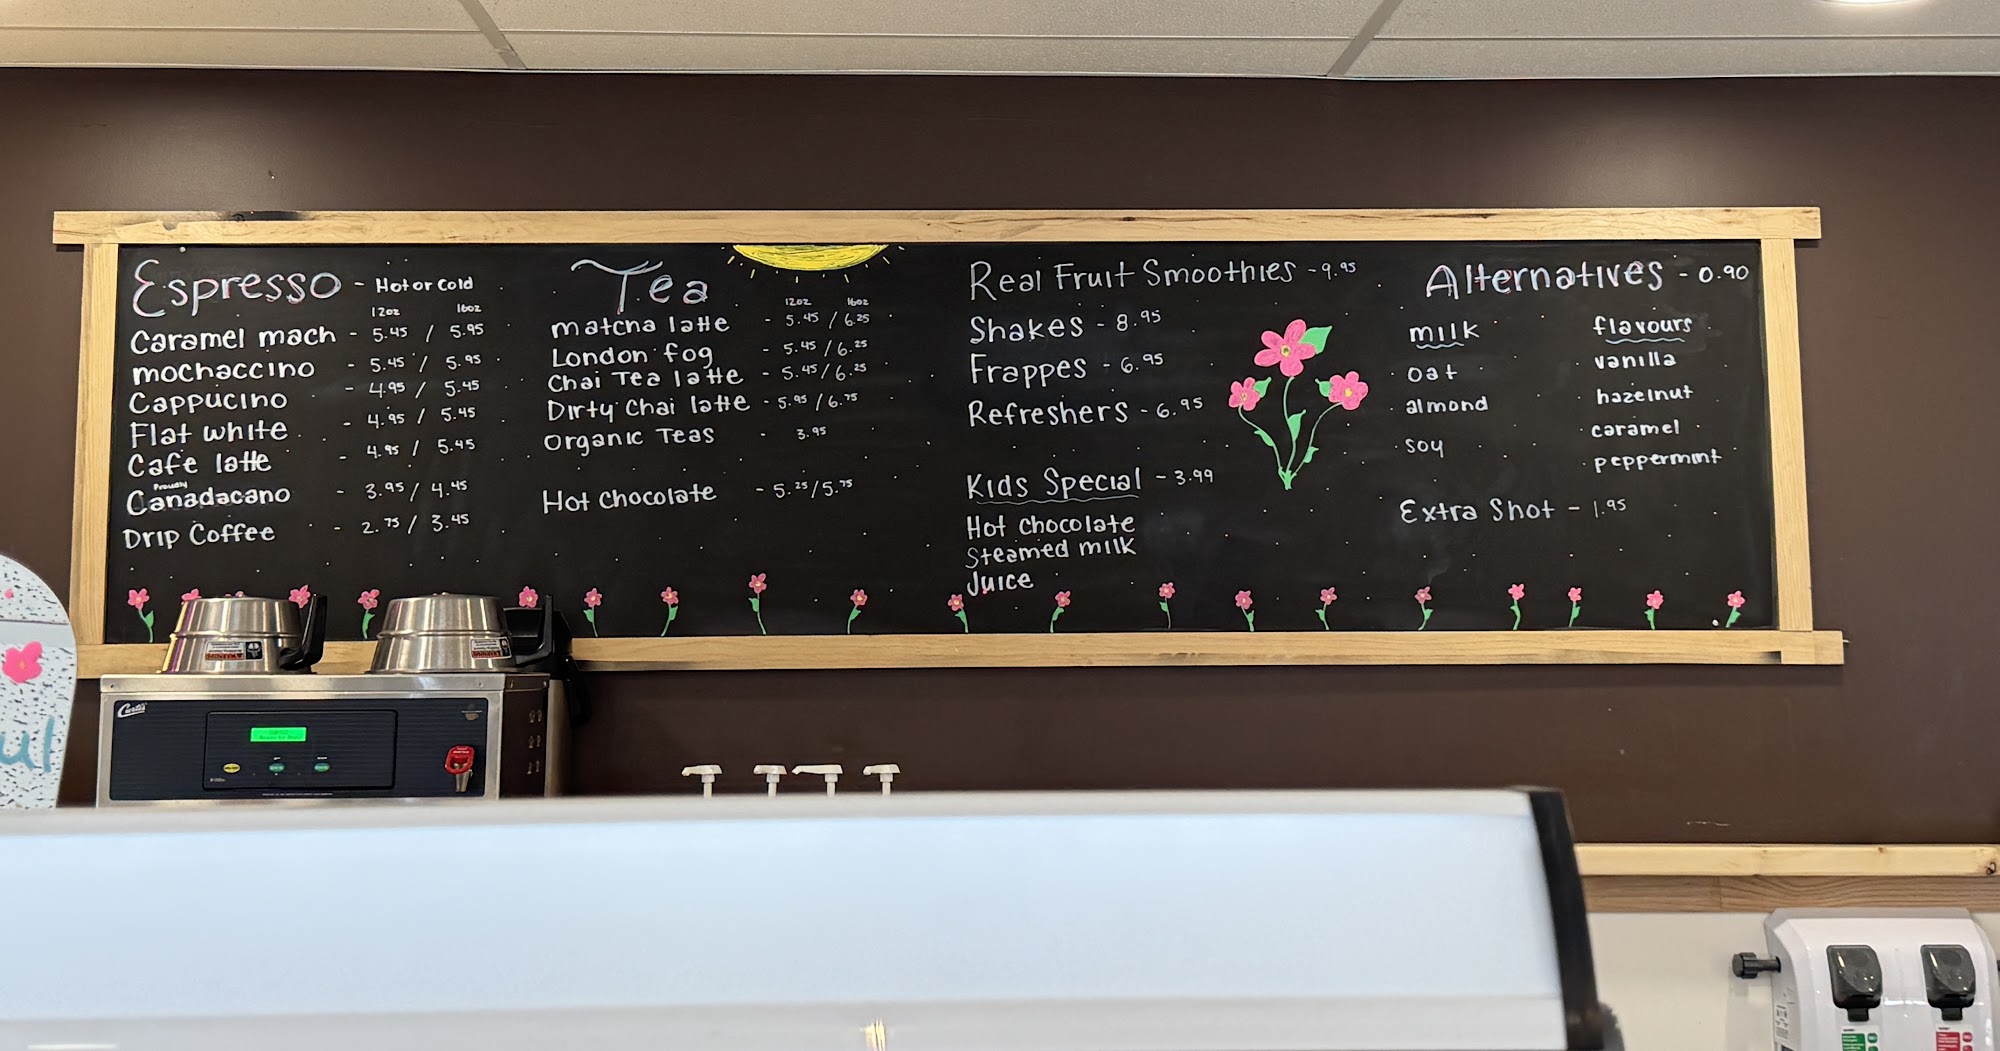 Espresso - Hot or cold
12oz 16oz
Caramel mach - 5.45 / 5.95
mochaccino - 5.45 / 5.95
Cappucino - 4.95 / 5.45
Flat white - 4.95 / 5.45
Cafe latte - 4.95 / 5.45
Proudly
Canadacano - 3.95 / 4.45
Drip Coffee - 2.75 / 3.45
Tea
12oz 16oz
matcha latte - 5.45 / 6.25
London fog - 5.45 / 6.25
Chai Tea latte - 5.45 / 6.25
Dirty Chai latte - 5.95 / 6.75
Organic Teas - 3.95
Hot Chocolate - 5.25 / 5.75
Real Fruit Smoothies - 9.95
Shakes - 8.95
Frappes - 6.95
Refreshers - 6.95
Kids Special - 3.99
Hot chocolate
Steamed milk
Juice
Alternatives - 0.90
milk
oat
almond
soy
flavours
vanilla
hazelnut
caramel
peppermint
Extra Shot - 1.95
Curtis
ul